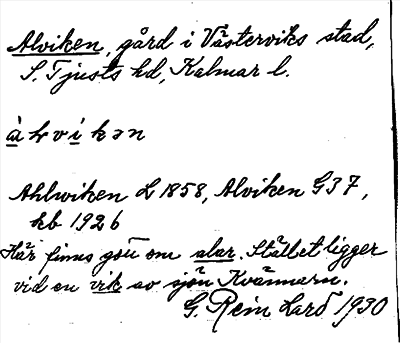 Alviken, gård i Västerviks stad,
S. Tjusts hd, Kalmar l.
àlvikən
Ahlwiken L 1858, Alviken G37,
kb 1926
Här finns gott om alar. Stället ligger
vid en vik av sjön Kvännarn.
G. Rein Lard 1930